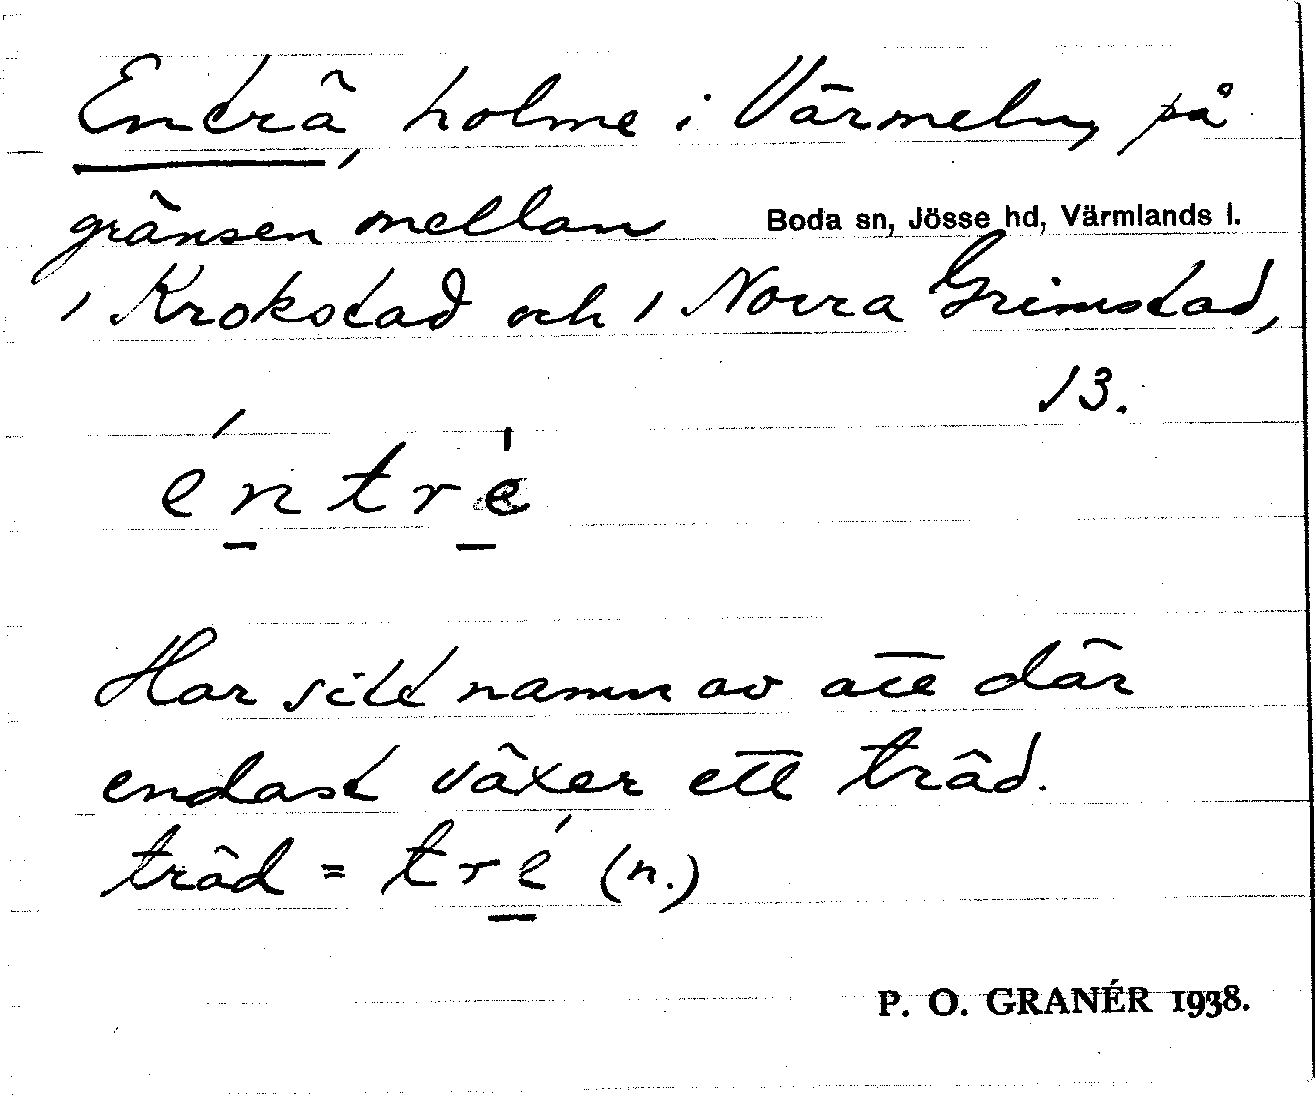 Enträ, holme i Värmeln, på
gränsen mellan Boda sn, Jösse hd, Värmlands l.
1 Krokstad och 1 Norra Grimstad,
13.
éntré
Har sitt namn av att där
endast växer ett träd.
träd = tré (n.)
P. O. GRANÉR 1938.